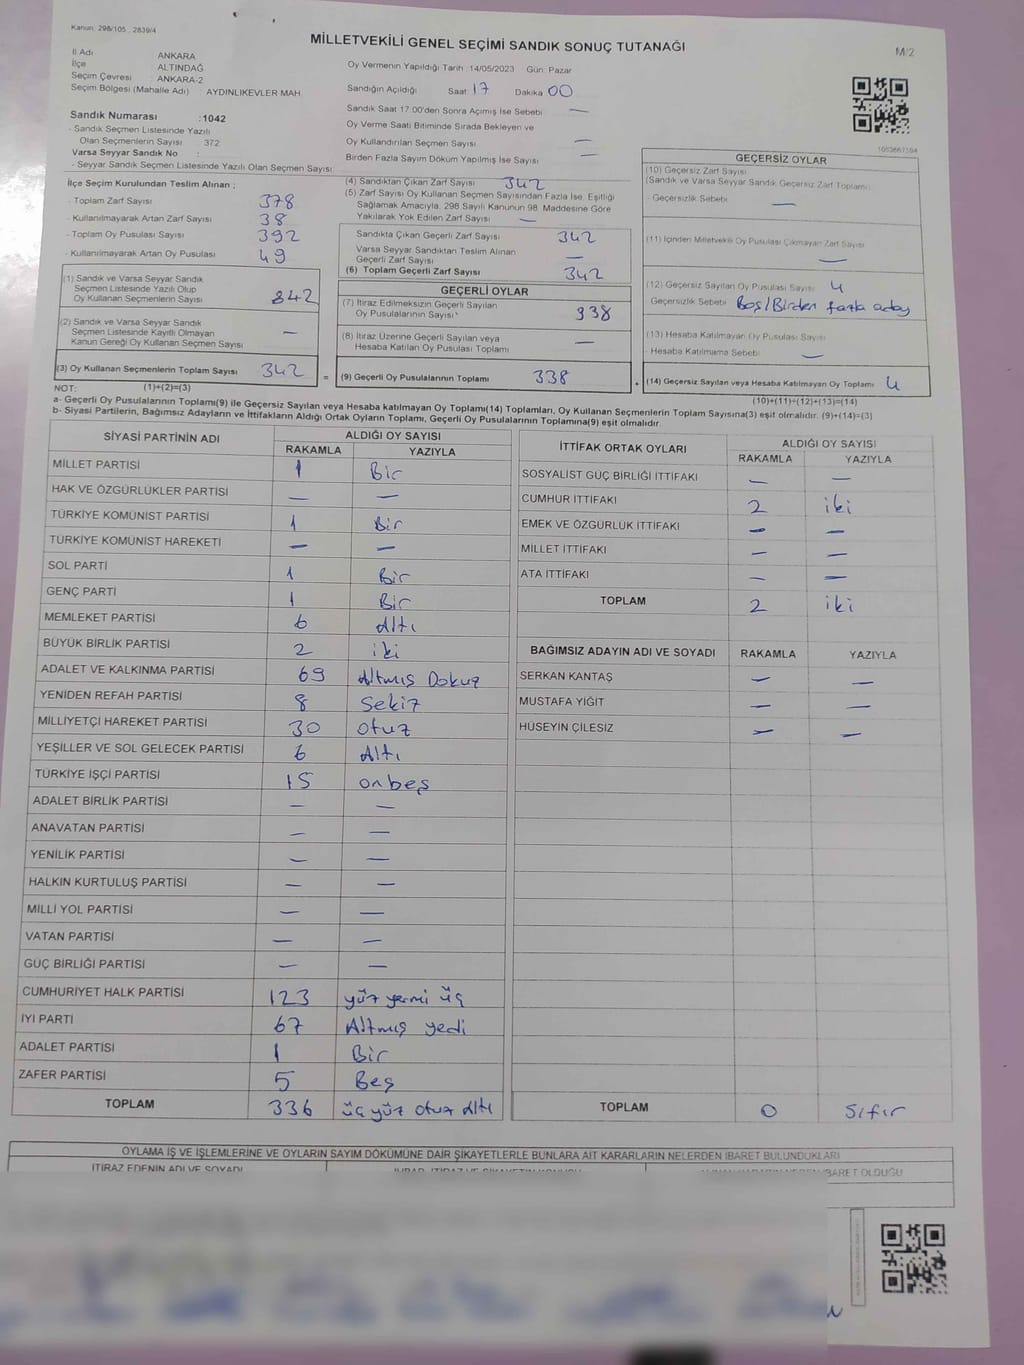 Kanun: 298/105 , 2839/4
MİLLETVEKİLİ GENEL SEÇİMİ SANDIK SONUÇ TUTANAĞI
M/2
İl Adı ANKARA
İlçe ALTINDAĞ
Seçim Çevresi : ANKARA-2
Seçim Bölgesi (Mahalle Adı) : AYDINLIKEVLER MAH.
Sandık Numarası :1042
- Sandık Seçmen Listesinde Yazılı
Olan Seçmenlerin Sayısı : 372
Varsa Seyyar Sandık No :
- Seyyar Sandık Seçmen Listesinde Yazılı Olan Seçmen Sayısı:
Oy Vermenin Yapıldığı Tarih :14/05/2023 Gün: Pazar
Sandığın Açıldığı Saat 17 Dakika 00
Sandık Saat 17:00'den Sonra Açımış İse Sebebi —
Oy Verme Saati Bitiminde Sırada Bekleyen ve
Oy Kullandırılan Seçmen Sayısı —
Birden Fazla Sayım Döküm Yapılmış İse Sayısı —
İlçe Seçim Kurulundan Teslim Alınan ;
- Toplam Zarf Sayısı 378
- Kullanılmayarak Artan Zarf Sayısı 38
- Toplam Oy Pusulası Sayısı 392
- Kullanılmayarak Artan Oy Pusulası 49
(1) Sandık ve Varsa Seyyar Sandık
Seçmen Listesinde Yazılı Olup
Oy Kullanan Seçmenlerin Sayısı 342
(2) Sandık ve Varsa Seyyar Sandık
Seçmen Listesinde Kayıtlı Olmayan
Kanun Gereği Oy Kullanan Seçmen Sayısı —
(3) Oy Kullanan Seçmenlerin Toplam Sayısı 342
(4) Sandıktan Çıkan Zarf Sayısı 342
(5) Zarf Sayısı Oy Kullanan Seçmen Sayısından Fazla İse, Eşitliği
Sağlamak Amacıyla, 298 Sayılı Kanunun 98. Maddesine Göre
Yakılarak Yok Edilen Zarf Sayısı —
Sandıkta Çıkan Geçerli Zarf Sayısı 342
Varsa Seyyar Sandıktan Teslim Alınan
Geçerli Zarf Sayısı —
(6) Toplam Geçerli Zarf Sayısı 342
GEÇERLİ OYLAR
(7) İtiraz Edilmeksizin Geçerli Sayılan
Oy Pusulalarının Sayısı 338
(8) İtiraz Üzerine Geçerli Sayılan veya
Hesaba Katılan Oy Pusulası Toplamı —
= (9) Geçerli Oy Pusulalarının Toplamı 338
1053667164
GEÇERSİZ OYLAR
(10) Geçersiz Zarf Sayısı
(Sandık ve Varsa Seyyar Sandık Geçersiz Zarf Toplamı)
- Geçersizlik Sebebi —
(11) İçinden Milletvekili Oy Pusulası Çıkmayan Zarf Sayısı
—
(12) Geçersiz Sayılan Oy Pusulası Sayısı 4
Geçersizlik Sebebi Boş/Birden fazla aday
(13) Hesaba Katılmayan Oy Pusulası Sayısı
- Hesaba Katılmama Sebebi —
+ (14) Geçersiz Sayılan veya Hesaba Katılmayan Oy Toplamı 4
NOT: (1)+(2)=(3)
(10)+(11)+(12)+(13)=(14)
a- Geçerli Oy Pusulaların Toplamı(9) ile Geçersiz Sayılan veya Hesaba katılmayan Oy Toplamı(14) Toplamları, Oy Kullanan Seçmenlerin Toplam Sayısına(3) eşit olmalıdır. (9)+(14)=(3)
b- Siyasi Partilerin, Bağımsız Adayların ve İttifakların Aldığı Ortak Oyların Toplamı, Geçerli Oy Pusulalarının Toplamına(9) eşit olmalıdır.
SİYASİ PARTİNİN ADI ALDIĞI OY SAYISI
RAKAMLA YAZIYLA
MİLLET PARTİSİ 1 Bir
HAK VE ÖZGÜRLÜKLER PARTİSİ — —
TÜRKİYE KOMÜNİST PARTİSİ 1 Bir
TÜRKİYE KOMÜNİST HAREKETİ — —
SOL PARTİ 1 Bir
GENÇ PARTİ 1 Bir
MEMLEKET PARTİSİ 6 Altı
BÜYÜK BİRLİK PARTİSİ 2 iki
ADALET VE KALKINMA PARTİSİ 69 Altmış Dokuz
YENİDEN REFAH PARTİSİ 8 Sekiz
MİLLİYETÇİ HAREKET PARTİSİ 30 Otuz
YEŞİLLER VE SOL GELECEK PARTİSİ 6 Altı
TÜRKİYE İŞÇİ PARTİSİ 15 onbeş
ADALET BİRLİK PARTİSİ — —
ANAVATAN PARTİSİ — —
YENİLİK PARTİSİ — —
HALKIN KURTULUŞ PARTİSİ — —
MİLLİ YOL PARTİSİ — —
VATAN PARTİSİ — —
GÜÇ BİRLİĞİ PARTİSİ — —
CUMHURİYET HALK PARTİSİ 123 yüz yirmi üç
İYİ PARTİ 67 Altmış yedi
ADALET PARTİSİ 1 Bir
ZAFER PARTİSİ 5 Beş
TOPLAM 336 üç yüz otuz Altı
İTTİFAK ORTAK OYLARI ALDIĞI OY SAYISI
RAKAMLA YAZIYLA
SOSYALİST GÜÇ BİRLİĞİ İTTİFAKI — —
CUMHUR İTTİFAKI 2 iki
EMEK VE ÖZGÜRLÜK İTTİFAKI — —
MİLLET İTTİFAKI — —
ATA İTTİFAKI — —
TOPLAM 2 iki
BAĞIMSIZ ADAYIN ADI VE SOYADI RAKAMLA YAZIYLA
SERKAN KANTAŞ — —
MUSTAFA YİĞİT — —
HÜSEYİN ÇİLESİZ — —
TOPLAM 0 Sıfır
OYLAMA İŞ VE İŞLEMLERİNE VE OYLARIN SAYIM DÖKÜMÜNE DAİR ŞİKAYETLERLE BUNLARA AİT KARARLARIN NELERDEN İBARET BULUNDUKLARI
İTİRAZ EDENİN ADI VE SOYADI
İBARET OLDUĞU